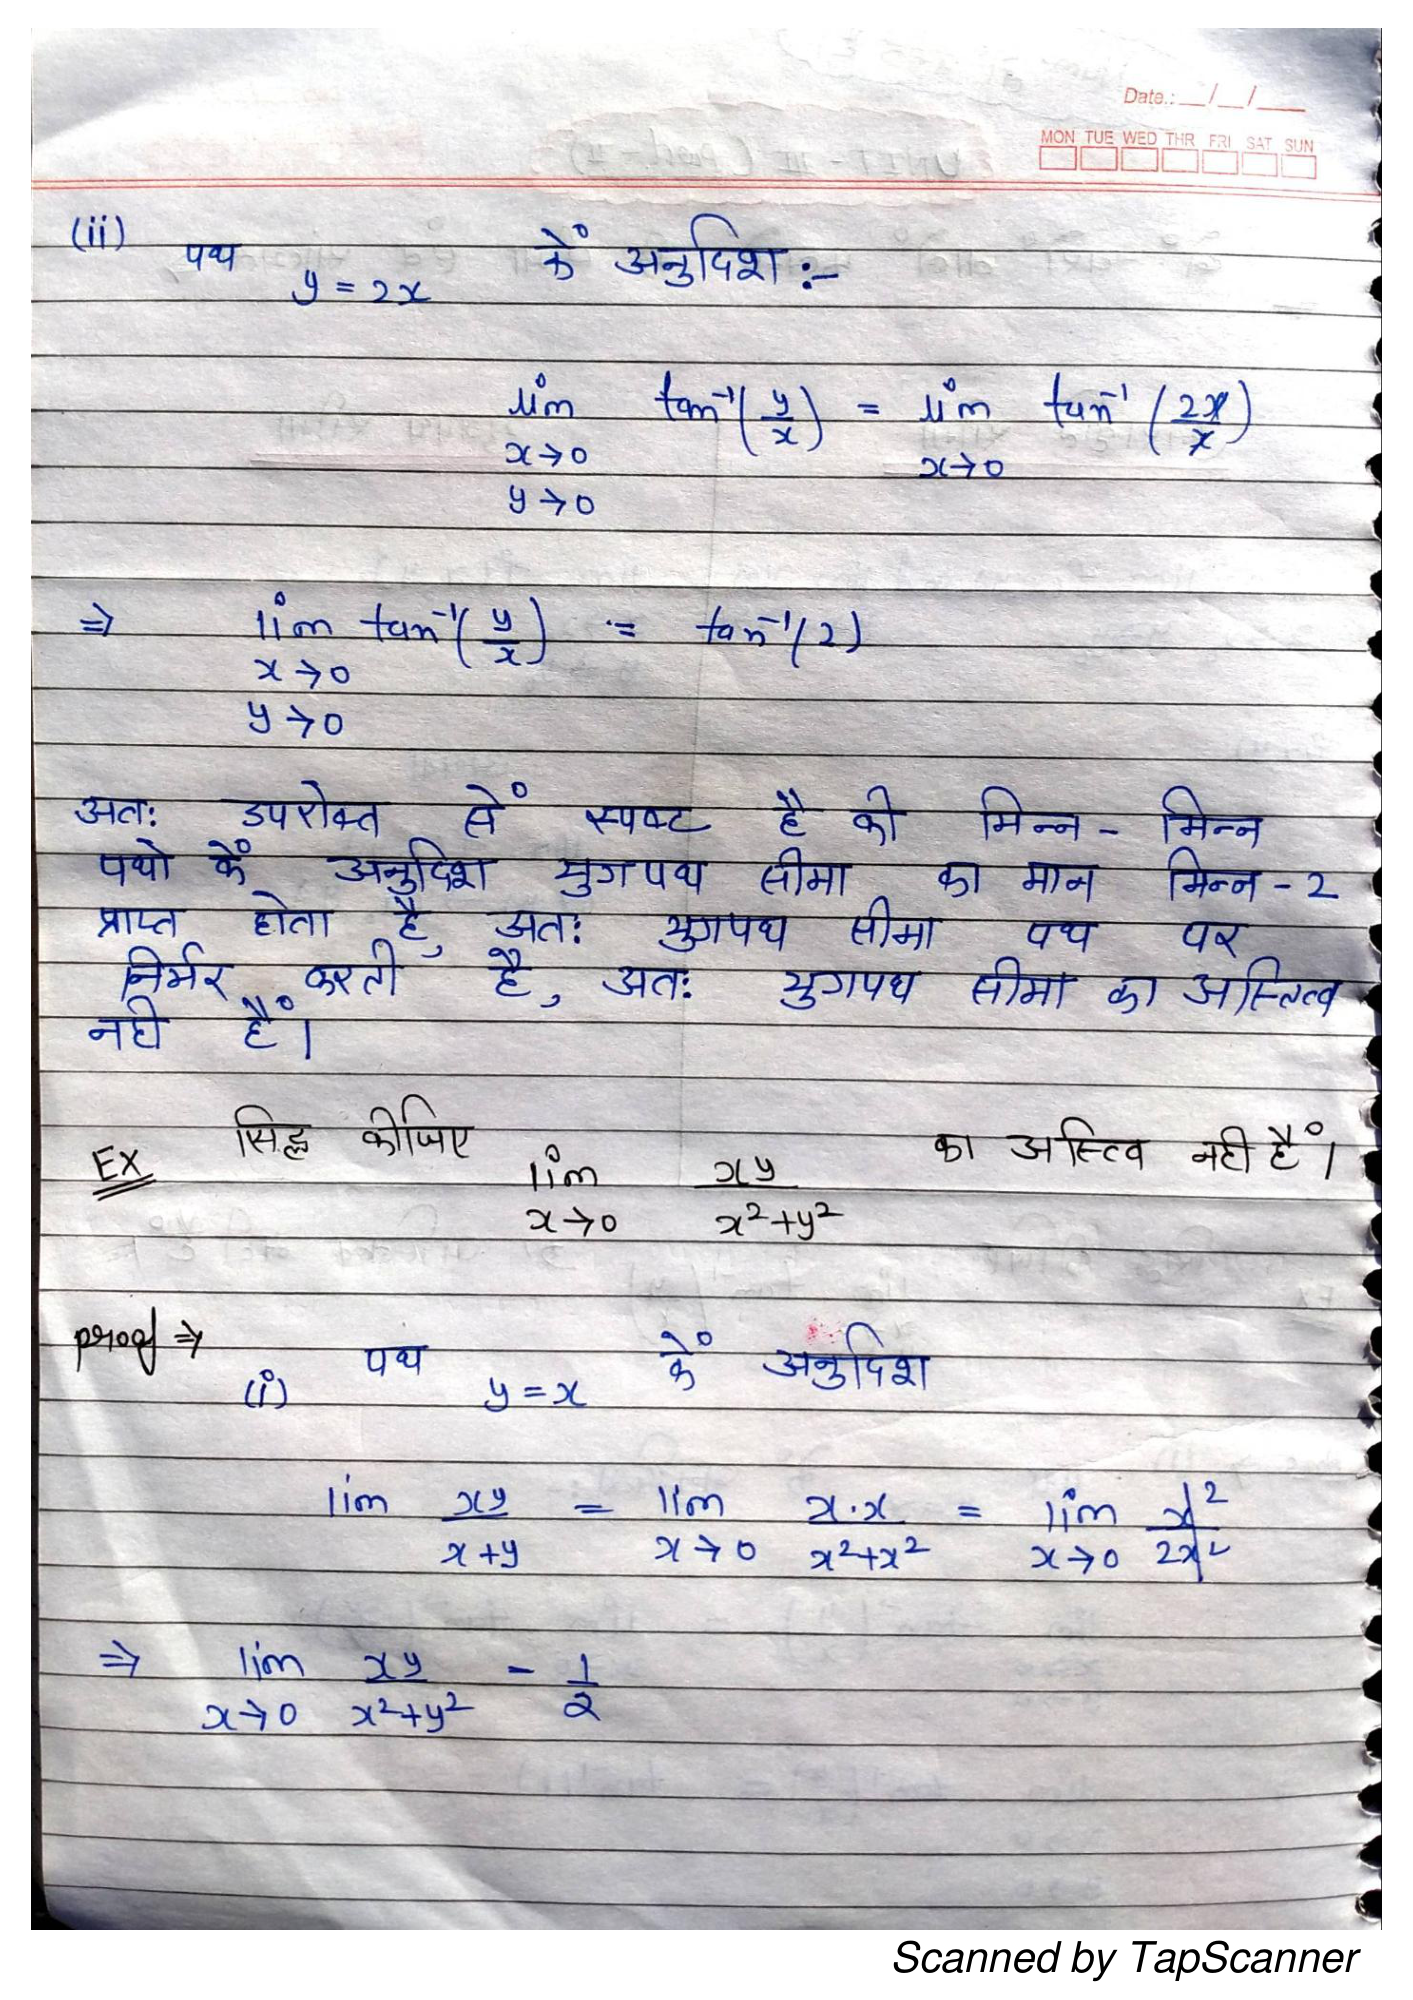 Date.: __/__/___
MON TUE WED THR FRI SAT SUN
(ii) पथ y = 2x कें अनुदिश :-
lim tan⁻¹(y/x) = lim tan⁻¹(2x/x)
x→0 x→0
y→0
⇒ lim tan⁻¹(y/x) = tan⁻¹(2)
x→0
y→0
अतः उपरोक्त सें स्पष्ट है की भिन्न - भिन्न
पथो कें अनुदिश युगपथ सीमा का मान भिन्न - 2
प्राप्त होता है, अतः युगपथ सीमा पथ पर
निर्भर करती है, अतः युगपथ सीमा का अस्तित्व
नही हैं।
EX सिद्ध कीजिए lim xy/x²+y² का अस्तित्व नही हैं।
x→0
proof ⇒
(i) पथ y = x कें अनुदिश
lim xy/x+y = lim x·x/x²+x² = lim x²/2x²
x→0 x→0
⇒ lim xy/x²+y² - 1/2
x→0
Scanned by TapScanner